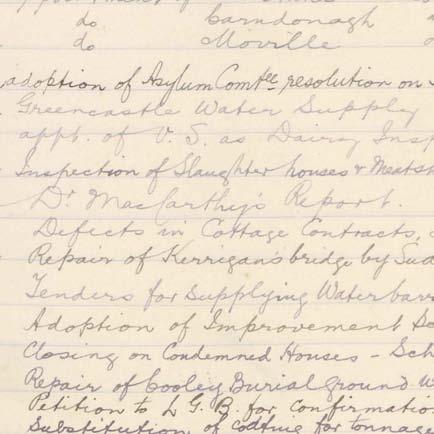 do Carndonagh
do Moville
adoption of Asylum Comtee resolution on
Greencastle Water Supply
appt. of V.S. as Dairy Insp
Inspection of Slaughter houses & Meat
Dr MacCarthy's Report.
Defects in Cottage Contracts,
Repair of Kerrigan's bridge by
Tenders for Supplying Water
Adoption of Improvement Sc
Closing on Condemned Houses - Sch
Repair of Cooley Burial ground
Petition to L.G.B. for confirmatio
Substitution of for tonnage